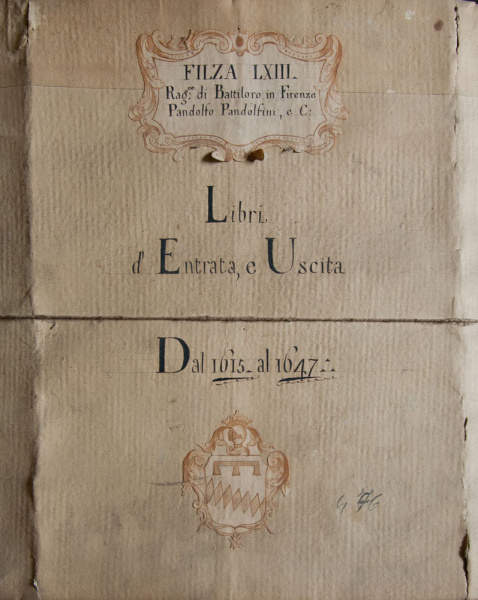 FILZA LXIII.
Rag.ne di Battiloro in Firenze
Pandolfo Pandolfini, e C:
Libri
d' Entrata, e Uscita
Dal 1615. al 1647.